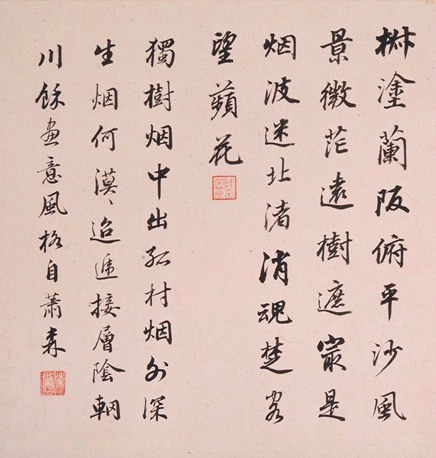 椒塗蘭阪俯平沙風
景微茫遠樹遮最是
烟波迷北渚消魂楚客
望蘋花
獨樹烟中出孤村烟外深
生烟何漠〻迢遞接層陰輞
川餘畫意風格自蕭森